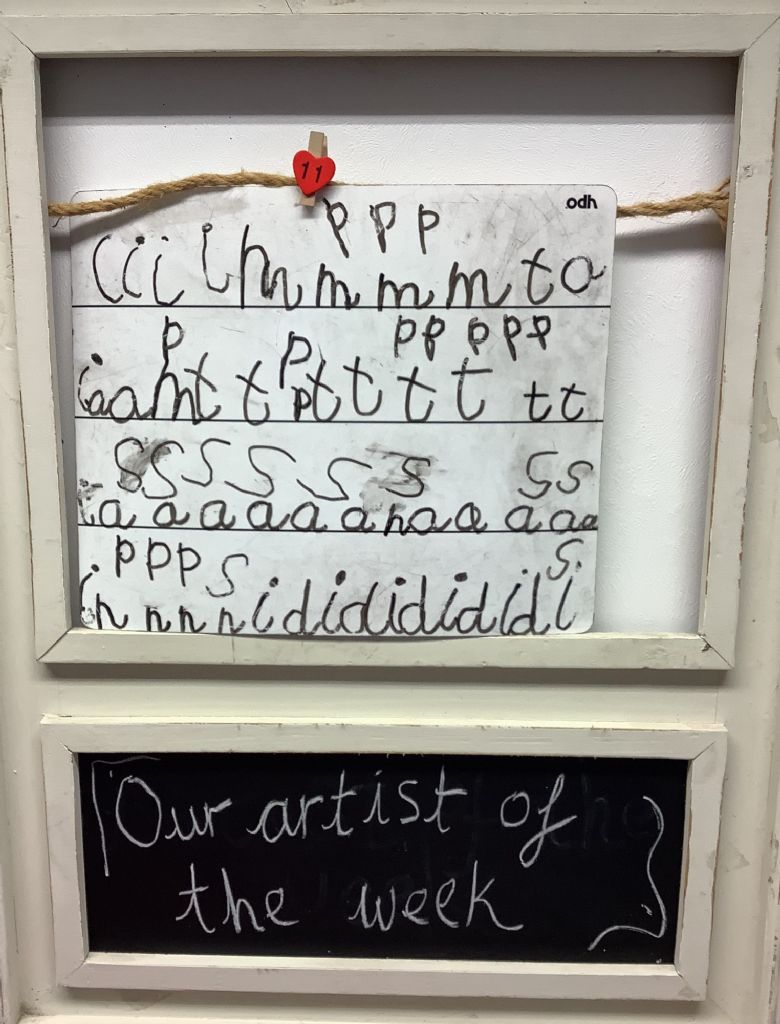 11
odh
p p p
i i i i h m m m m t a
p p pp p p p
i a a m t t p t t t t t t
S S S S S S S S
i a a a a a a n a a a a a
p p p s s
i n n n n i d i d i d i d i d i
Our artist of
the week